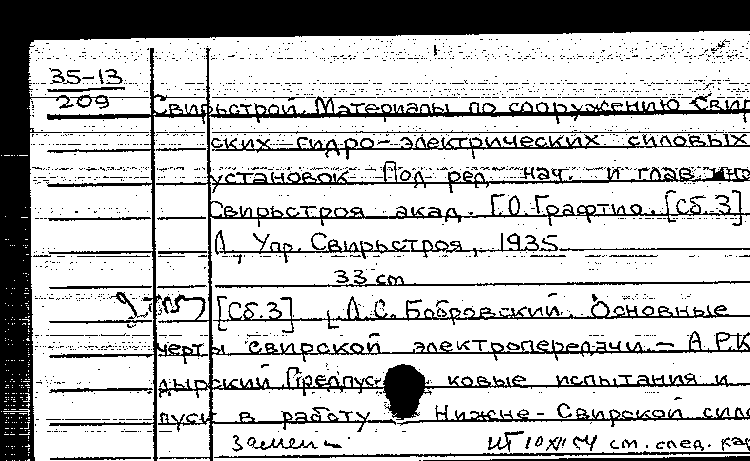 35-13
209
Свирьстрой. Материалы по сооружению Свир
ских гидро-электрических силовых
установок Под ред. нач. и глав. инс
Свирьстроя акад. Г.О. Графтио. [Сб. 3]
Л, Упр. Свирьстроя, 1935
33 cm
[Сб.3] Л.С. Бобровский. Основные
черты свирской электропередачи. — А.Р.К
дырский Предпус ковые испытания и
пуск в работу Нижне-Свирской сило
см. след. кар